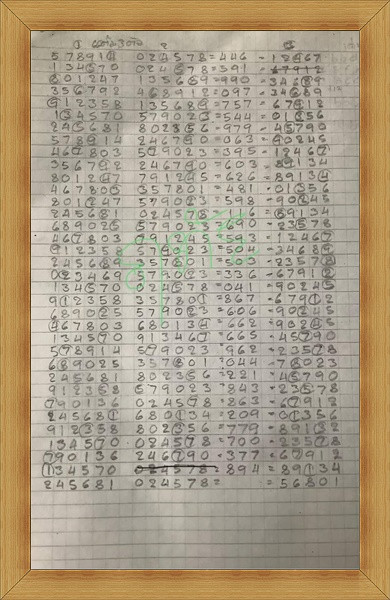 578914 024578=446 -12467
134570 024578=591 -67912
801247 135689=990 -34689
356792 468912=097 -34689
912358 135689=757 -67912
134570 579023=544 -01356
245681 802356=979 -45790
578914 246790=063 -90245
467803 579023=395 -12467
356792 246790=603 -89134
801247 791245=626 -89134
467803 357801=481 -01356
801247 579023=598 -90245
245681 024578=116 -89134
689025 579023=690 -23578
467803 791245=593 -12467
912358 579023=504 -34689
245689 357801=503 -23578
023469 579023=336 -67912
134570 024578=041 -90245
912358 357801=867 -67912
689025 579023=606 -90245
467803 680134=662 -90245
134570 913467=665 -45790
578914 579023=962 -23578
689025 357801=244
245681 802356=221 -45790
912358 579023=843 -23578
790136 024578=863 -67912
245681 680134=209 -01356
912358 802356=779 -89132
134570 024578=700 -23578
790136 246790=377 -67912
134570 024578=894 =89134
245681 024578= =56801